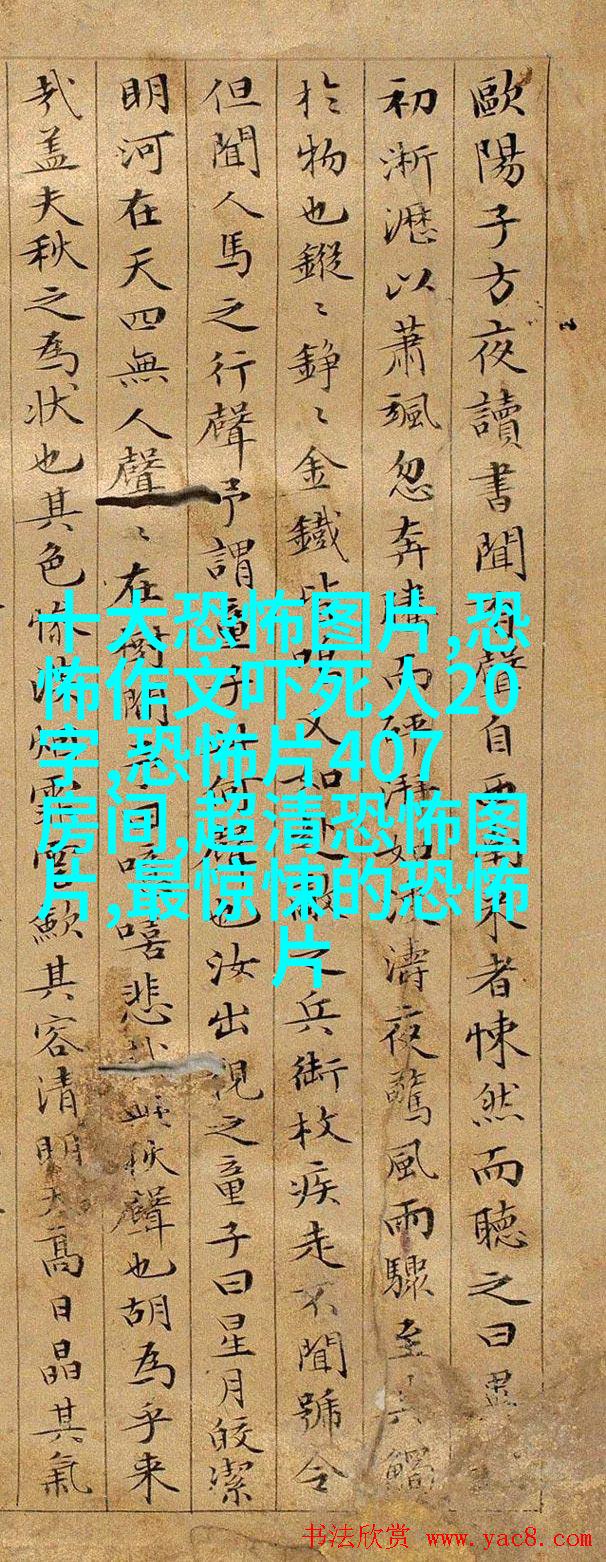 歐陽子方夜讀書聞有聲自西南來者悚然而聽之曰異
初淅瀝以蕭颯忽奔騰而砰湃如波濤夜驚風雨驟至其觸
於物也鏦〻錚〻金鐵皆鳴又如赴敵之兵銜枚疾走不聞號令
但聞人馬之行聲予謂童子此何聲也汝出視之童子曰星月皎潔
明河在天四無人聲〻在樹間予曰噫嘻悲哉此秋聲也胡為乎来
哉盖夫秋之為狀也其色慘淡煙霏雲歛其容清明天高日晶其氣
十大恐怖图片,恐
怖作文吓死人20
字,恐怖片407
房间,超清恐怖图
片,最惊悚的恐怖
片
书法欣赏 www.yac8.com